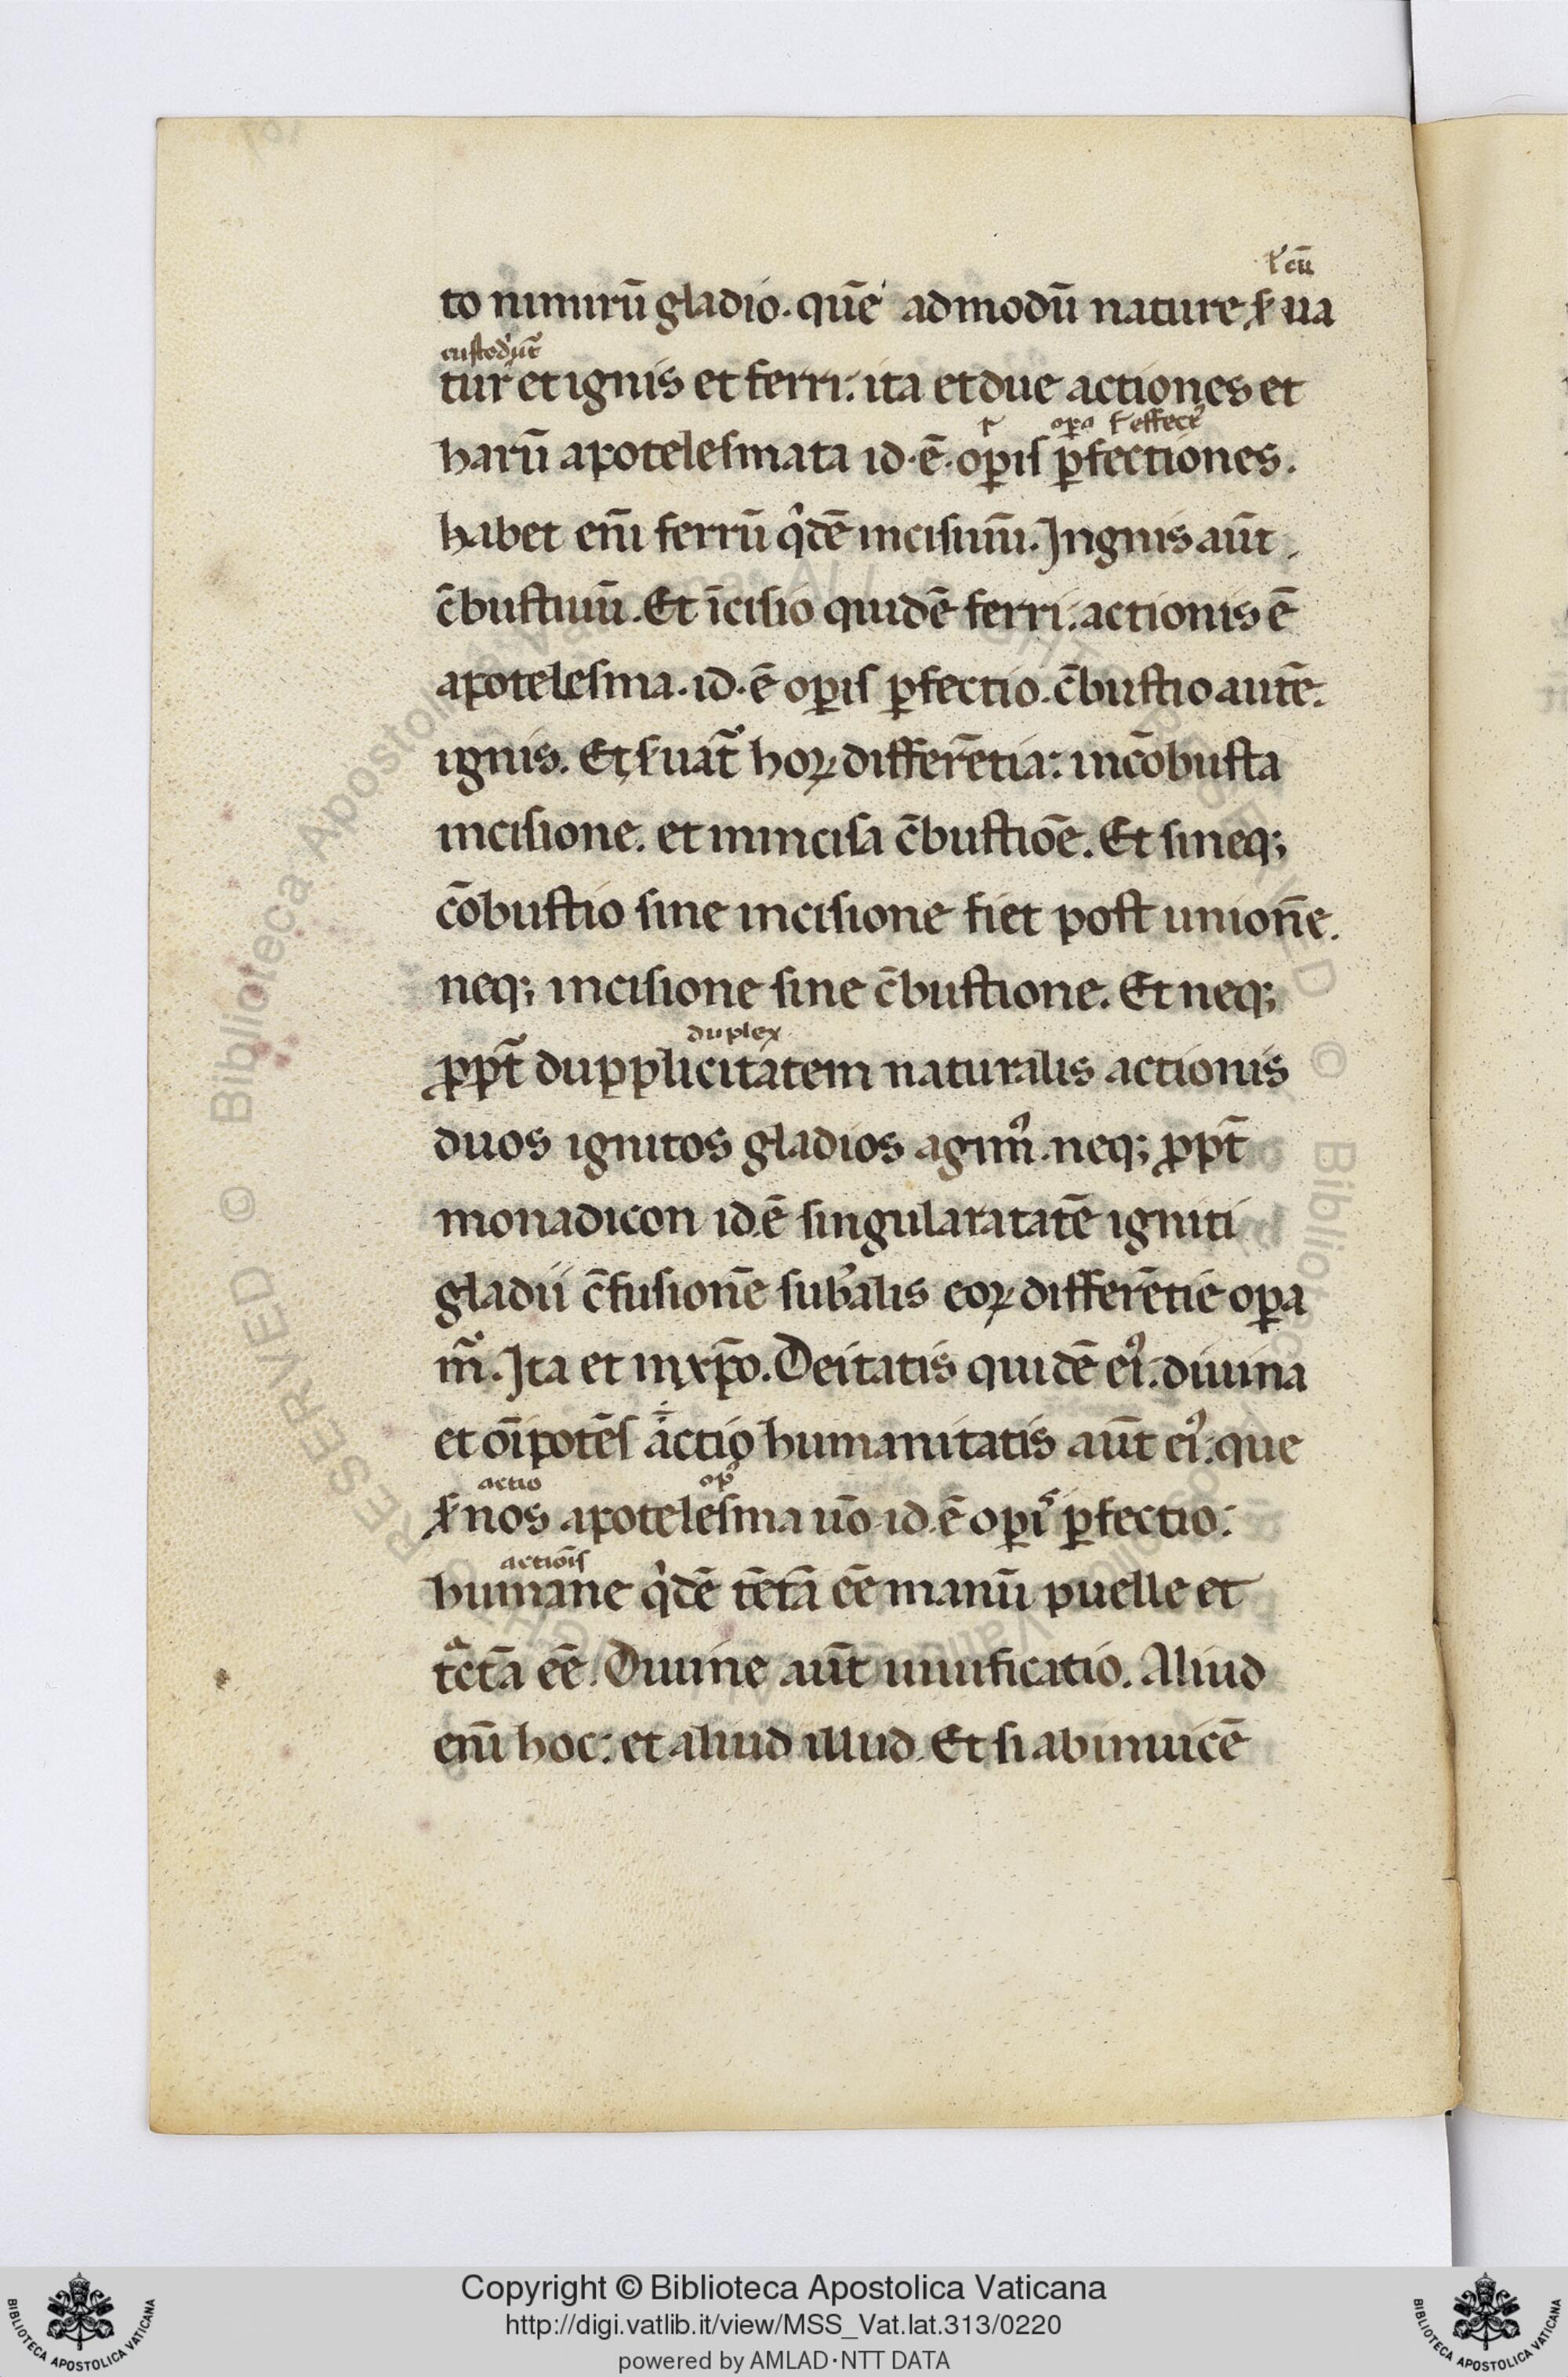 ł cū
to nimirū gladio. quē admodū nature ẜua
custodiūt᷑
tur et ignis et ferri: ita et due actiones et
opa ł effect᷑
harū apotelesmata id.ē. op̲is p̲fectiones.
habet eni̅ ferrū qͥdē incisiuū. Ingnis aūt
c̄bustiuū. Et īcisio quidē ferri: actionis ē
apotelesma. id.ē op̲is p̲fectio. c̄bustio autē.
ignis. Et ẜuāt᷑ hoꝝ differētia: incōbusta
incisione. et inincisa c̄bustiōe. Et sineqꝫ
cōbustio sine incisione fiet post unionē.
neqꝫ incisione sine c̄bustione. Et neqꝫ
duplex
ꝓpt̄ dupplicitatem naturalis actionis
duos ignitos gladios agimꝰ. neqꝫ ꝓpt̄
monadicon id.ē singularatatē igniti
gladii c̄fusionē subālis eoꝝ differētie op̲a
m᷑. Ita et in xp̄o. Deitatis quidē eiꝰ. diuina
et oīpotēs actio humanitatis aūt eiꝰ: que
actio opꝰ
ẜ nos apotelesma uō id.ē op̲is p̲fectio:
actiōis
humane qͥdē tētā ēē manū puelle et
tͣctā ēē. Diuine aūt uiuificatio. Aliud
eni̅ hoc: et aliud illud. Et si abinuicē
Copyright © Biblioteca Apostolica Vaticana
http://digi.vatlib.it/view/MSS_Vat.lat.313/0220
powered by AMLAD·NTT DATA
BIBLIOTECA APOSTOLICA VATICANA
BIBLIOTECA APOSTOLICA VATICANA